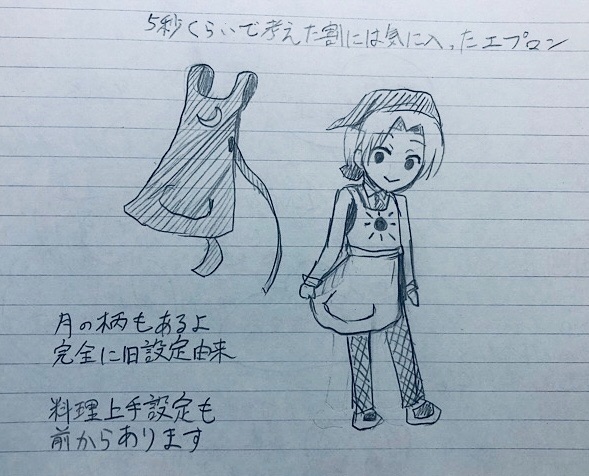 5秒くらいで考えた割には気に入ったエプロン
月の柄もあるよ
完全に旧設定由来
料理上手設定も
前からあります